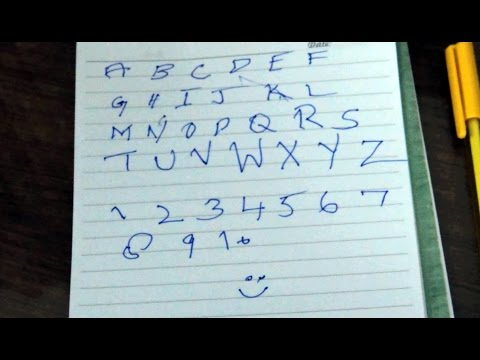 Date
A B C D E F
G H I J K L
M N O P Q R S
T U V W X Y Z
1 2 3 4 5 6 7
8 9 10